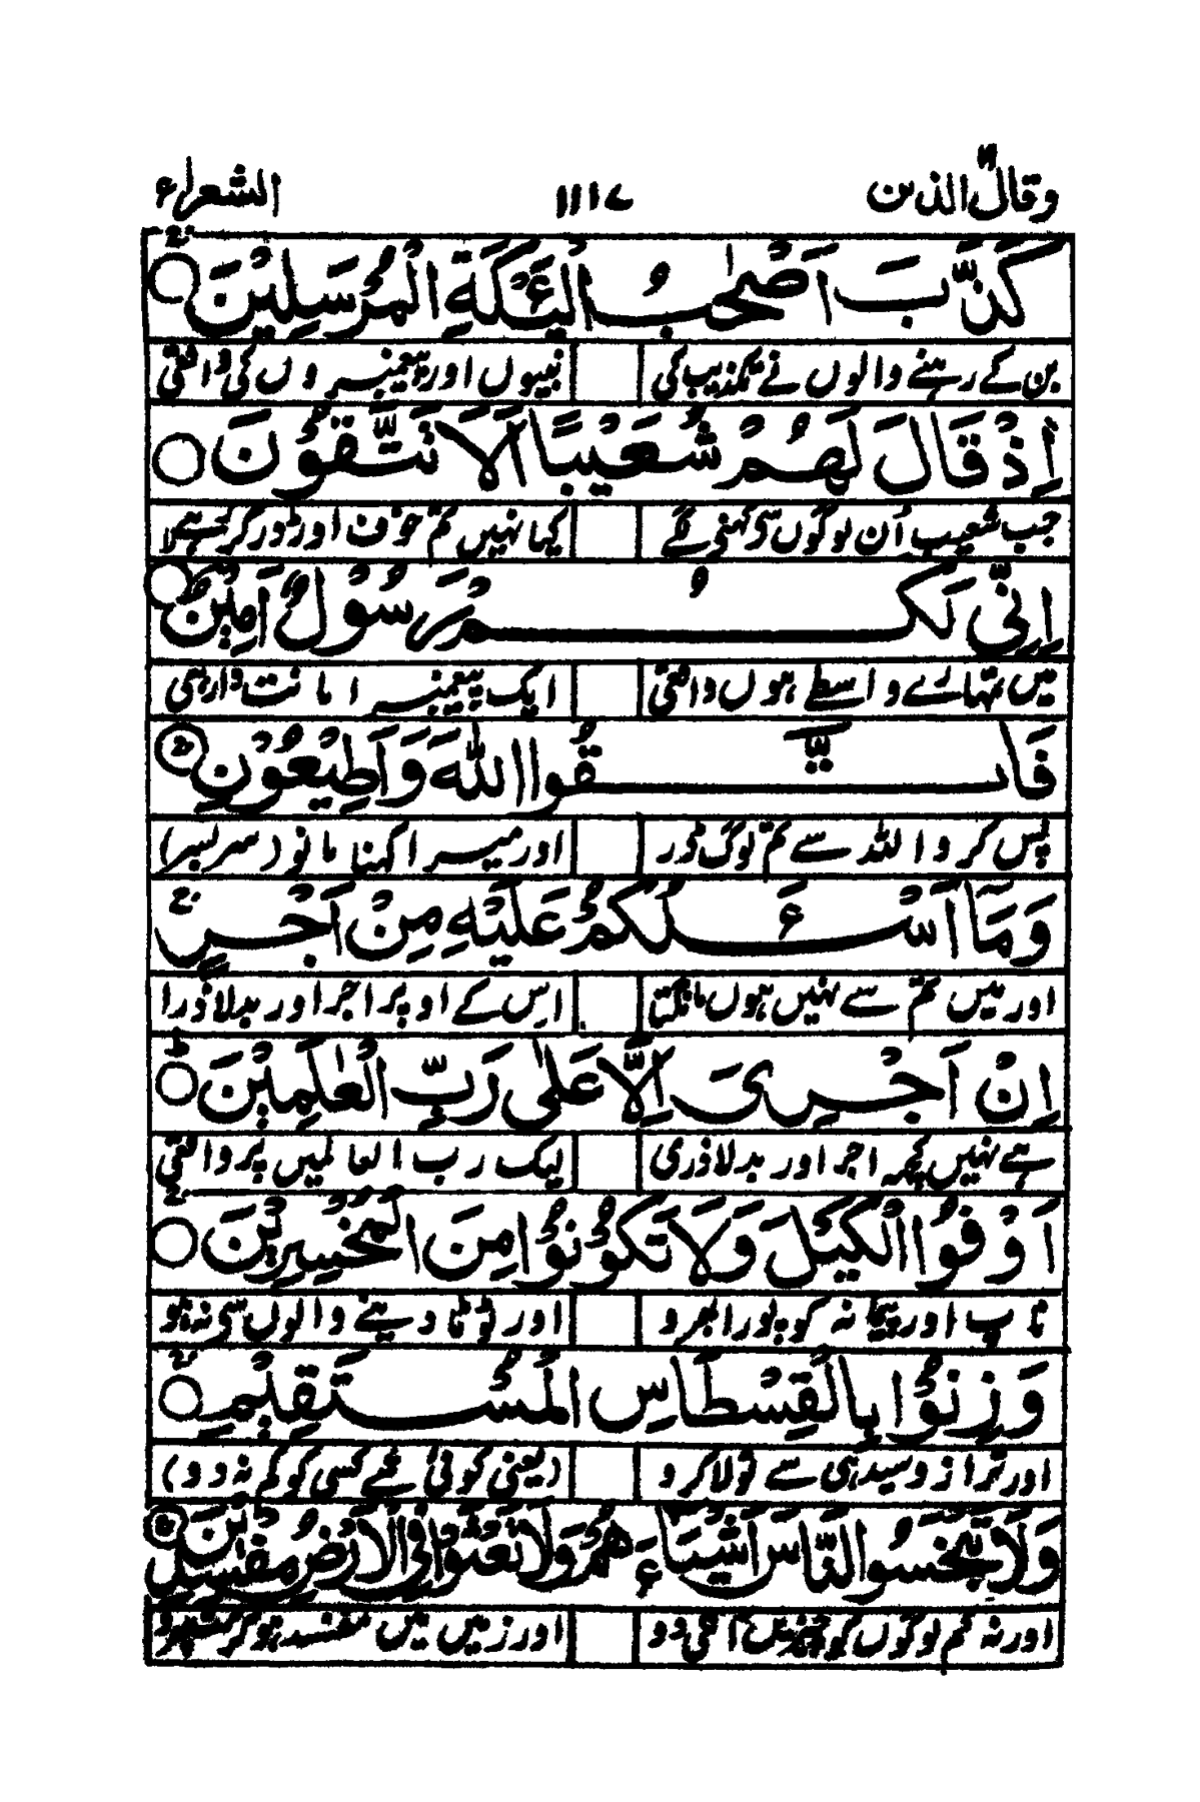 وقال الذین ۱۹ ۱۱۱۷ الشعراء
كَذَّبَ اَصْحٰبُ لْـَٔيْكَةِ الْمُرْسَلِيْنَ
بن کے رہنے والوں نے تکذیب کی نبیوں اور پیغمبروں کی واقعی
اِذْ قَالَ لَهُمْ شُعَيْبٌ اَلَا تَتَّقُوْنَ
جب شعیب اُن لوگوں سی کہنی لگے کیا نہیں تم خوف اور ڈور کر
اِنِّیْ لَكُمْ رَسُوْلٌ اَمِيْنٌ
میں تمہارے واسطے ہوں واقعی ایک پیغمبر امانت دار ہی
فَاتَّقُوا اللّٰهَ وَاَطِيْعُوْنِ
پس کرو اللہ سے تم لوگ ڈر اور میرا کہنا مانو (سربسر)
وَمَا اَسْـَٔلُكُمْ عَلَيْهِ مِنْ اَجْرٍ
اور میں تم سے نہیں ہوں مانگتا اس کے اوپر اجر اور بدلا ذرا
اِنْ اَجْرِیَ اِلَّا عَلٰی رَبِّ الْعٰلَمِيْنَ
ہے نہیں کچھ اجر اور بدلا ذری لیک رب العالمیں پر واقعی
اَوْفُوا الْكَيْلَ وَلَا تَكُوْنُوْا مِنَ الْمُخْسِرِيْنَ
ناپ اور پیمانہ کو پورا بھرو اور ٹوٹا دینے والوں سی نہ ہو
وَزِنُوْا بِالْقِسْطَاسِ الْمُسْتَقِيْمِ
اور ترازو سیدہی سے تولا کرو (یعنی کوئی شے کسی کو کم نہ دو)
وَلَا تَبْخَسُوا النَّاسَ اَشْيَآءَهُمْ وَلَا تَعْثَوْا فِی الْاَرْضِ مُفْسِدِيْنَ
اور نہ تم لوگوں کو چیزیں کم دو اور زمیں میں مفسد ہو کر